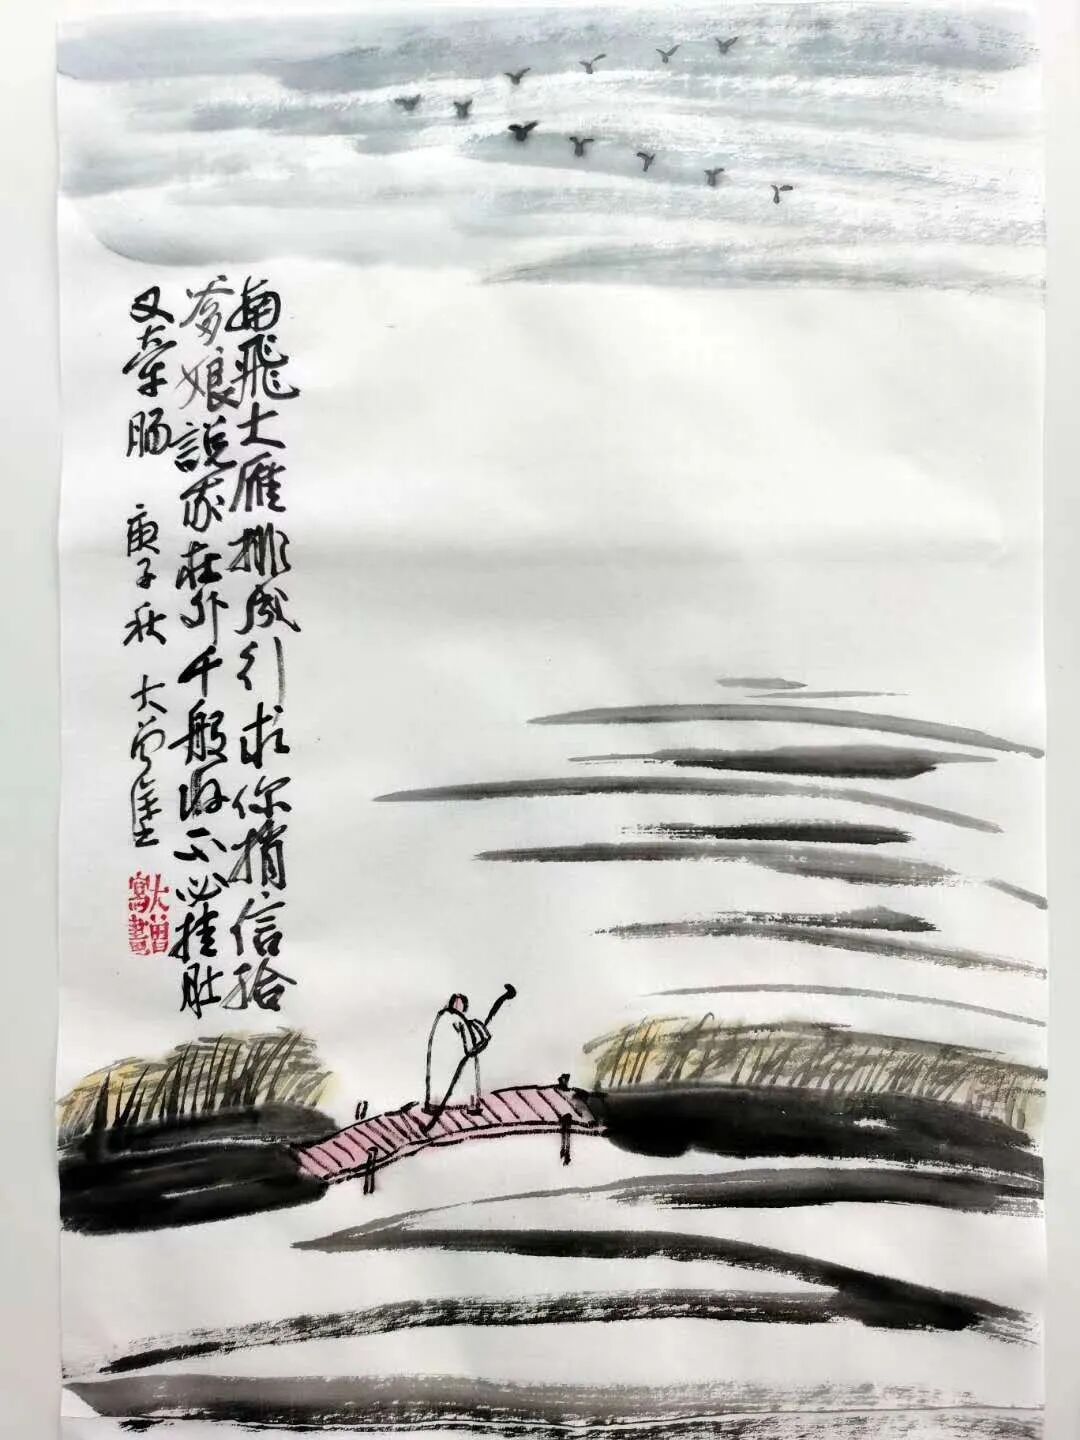 南飛大雁排成行求你捎信給
爹娘說家在外千般好不必挂肚
又牽腸 庚子秋 大曾
大曾寫畫